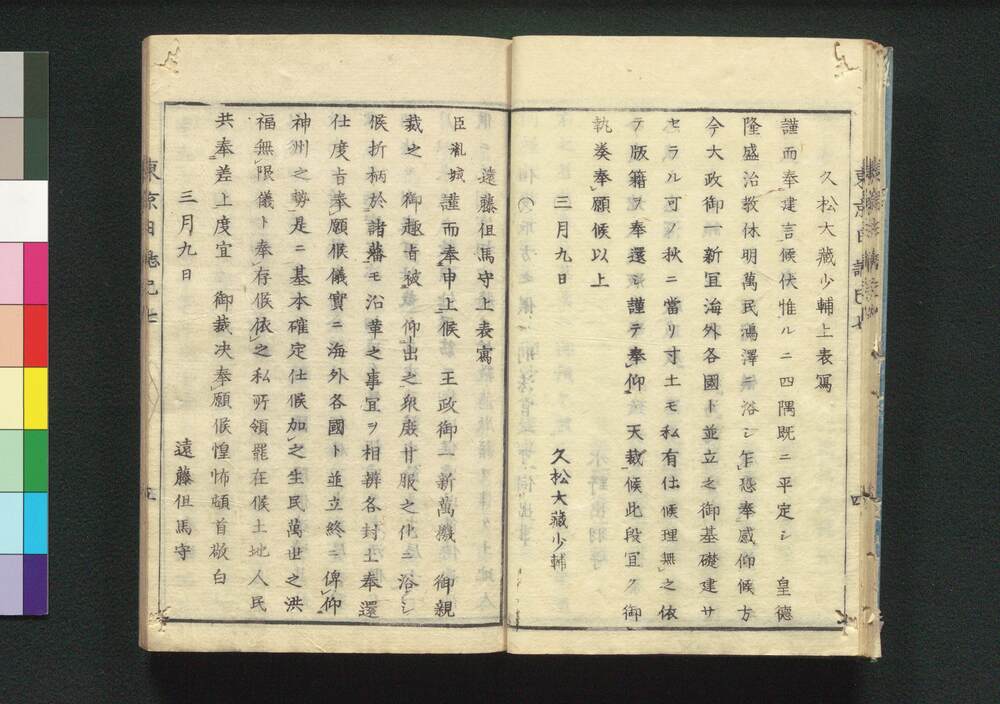 久松大藏少輔上表寫
謹而奉建言候伏惟ルニ四隅既ニ平定シ　皇德
隆盛治教休明萬民鴻澤ニ浴シ乍恐奉感仰候方
今大政御一新宜海外各國ト並立之御基礎建サ
セラル可秋ニ當リ寸土モ私有仕候理無之依
テ版籍ヲ奉還シ謹テ奉仰　天裁候此段宜ク御
執奏奉願候以上
三月九日
久松大藏少輔
遠藤但馬守上表寫
臣胤城　謹而奉申上候　王政御一新萬機　御親
裁之　御趣旨被　仰出之衆庶甘服之化ニ浴シ
候折柄於諸藩モ沿革之事宜ヲ相辨各封土奉還
仕度旨奉願候儀實ニ海外各國ト並立終ニ俾仰
神州之勢是ニ基本確定仕候加之生民萬世之洪
福無限儀ト奉存候依之私所領罷在候土地人民
共奉差上度宜　御裁决奉願候惶怖頓首敬白
三月九日
遠藤但馬守
東京日誌巳七
四
五